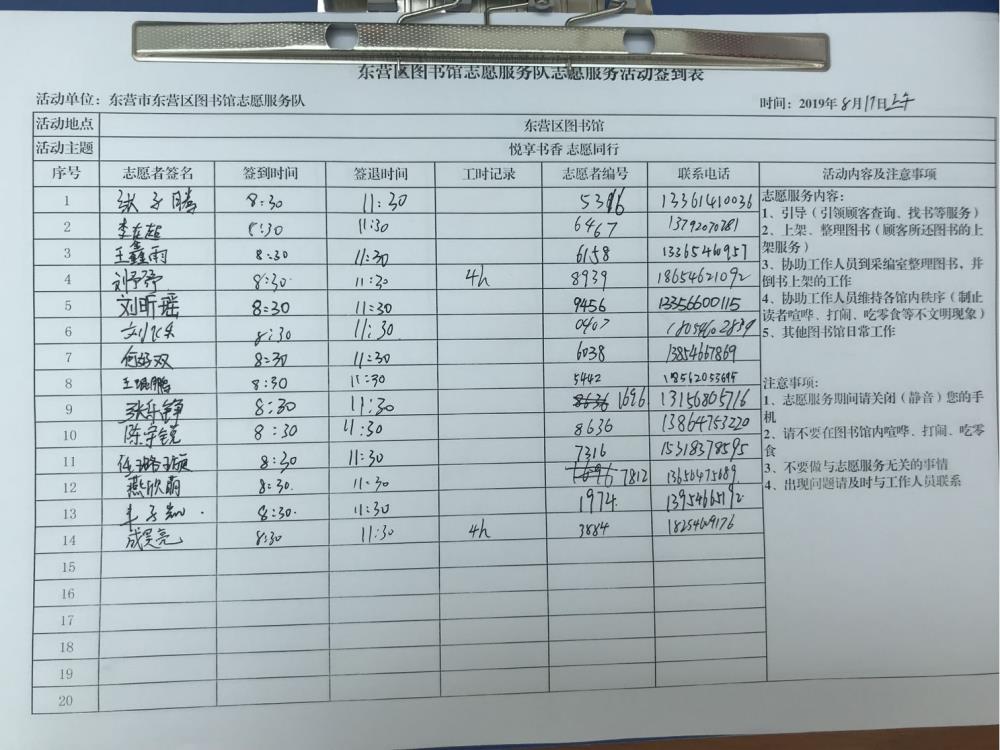 东营区图书馆志愿服务队志愿服务活动签到表
活动单位：东营市东营区图书馆志愿服务队 时间：2019年8月17日上午
活动地点 东营区图书馆
活动主题 悦享书香 志愿同行
序号 志愿者签名 签到时间 签退时间 工时记录 志愿者编号 联系电话 活动内容及注意事项
1 张子腾 8:30 11:30 5316 13361410036
2 8:30 11:30 6467 13792070781
3 王鑫雨 8:30 11:30 6158 13365460957
4 刘予汐 8:30 11:30 4h 8939 18654621092
5 刘昕瑶 8:30 11:30 9456 13356600115
6 8:30 11:30 0407 18054602839
7 8:30 11:30 6038 13854667869
8 王琨鹏 8:30 11:30 5442
9 8:30 11:30 8636 1696 13156805716
10 陈宇锐 8:30 11:30 8636 13864753220
11 8:30 11:30 7316 15318378595
12 燕欣萌 8:30 11:30 1696 7812
13 8:30 11:30 1974
14 成昊亮 8:30 11:30 4h 3884
15
16
17
18
19
20
志愿服务内容：
1、引导（引领顾客查询、找书等服务）
2、上架、整理图书（顾客所还图书的上
架服务）
3、协助工作人员到采编室整理图书，并
倒书上架的工作
4、协助工作人员维持各馆内秩序（制止
读者喧哗、打闹、吃零食等不文明现象）
5、其他图书馆日常工作
注意事项：
1、志愿服务期间请关闭（静音）您的手
机
2、请不要在图书馆内喧哗、打闹、吃零
食
3、不要做与志愿服务无关的事情
4、出现问题请及时与工作人员联系